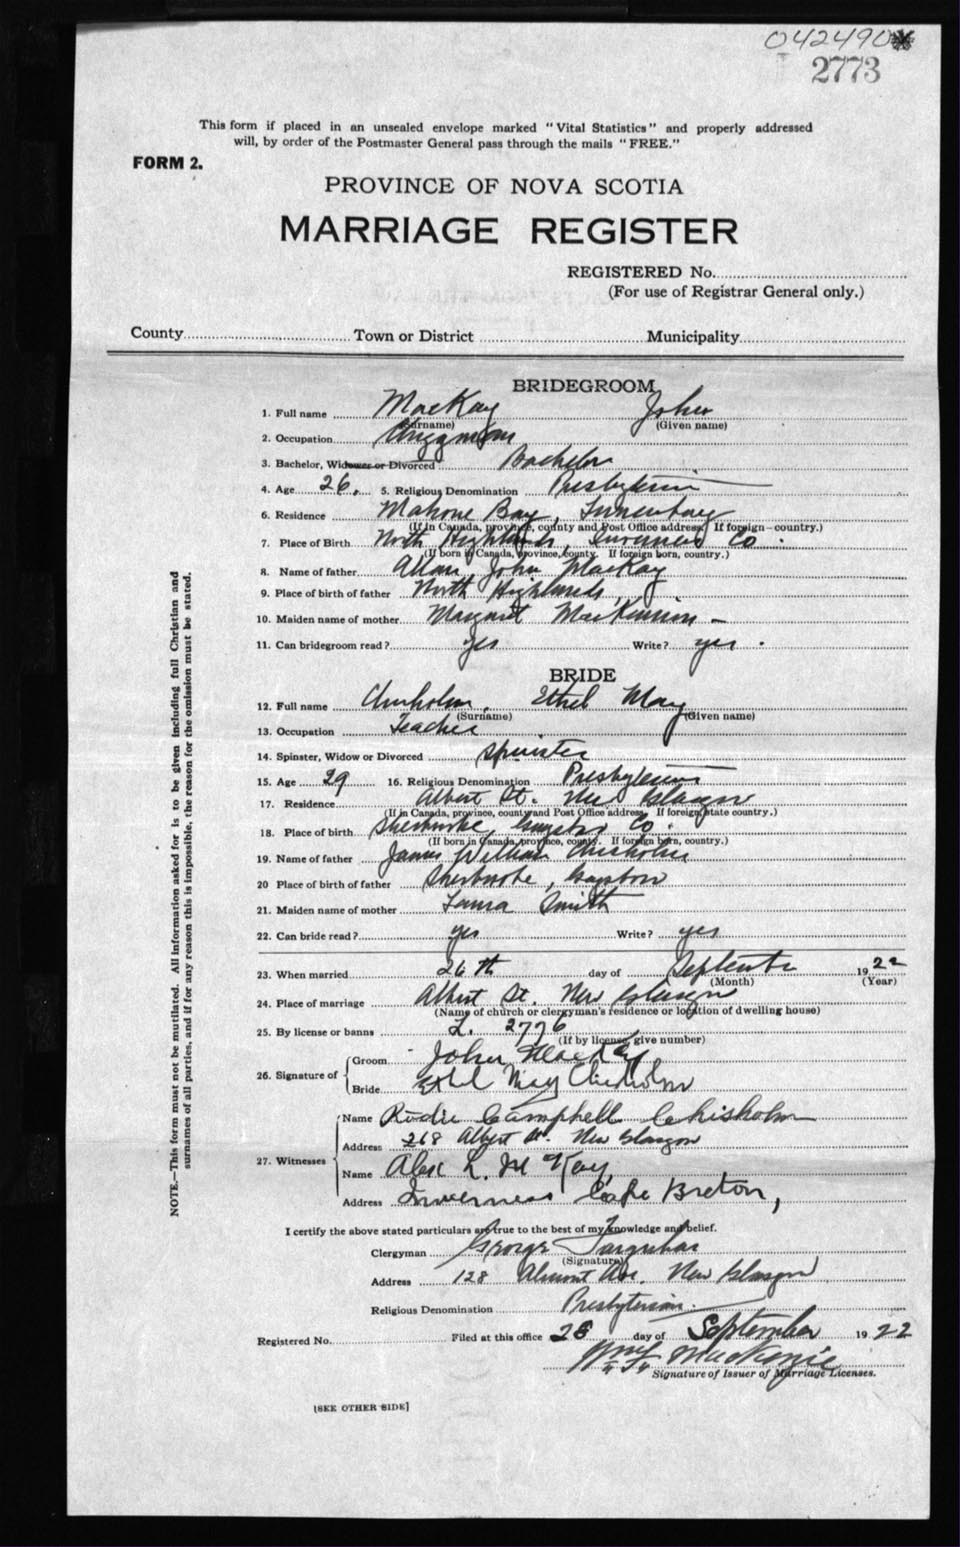 042490
2773
This form if placed in an unsealed envelope marked "Vital Statistics" and properly addressed
will, by order of the Postmaster General pass through the mails "FREE."
FORM 2.
PROVINCE OF NOVA SCOTIA
MARRIAGE REGISTER
REGISTERED No.
(For use of Registrar General only.)
County Town or District Municipality
BRIDEGROOM
1. Full name MacKay John
(Surname) (Given name)
2. Occupation Clergyman
3. Bachelor, Widower or Divorced Bachelor
4. Age 26. 5. Religious Denomination Presbyterian
6. Residence Mahone Bay, Lunenburg
(If in Canada, province, county and Post Office address. If foreign-country.)
7. Place of Birth North Highlands, Inverness Co.
(If born in Canada, province, county. If foreign born, country.)
8. Name of father Allan John MacKay
9. Place of birth of father North Highlands,
10. Maiden name of mother Margaret MacKinnon
11. Can bridegroom read? Yes Write? yes.
BRIDE
12. Full name Chisholm, Ethel May
(Surname) (Given name)
13. Occupation Teacher
14. Spinster, Widow or Divorced spinster
15. Age 29 16. Religious Denomination Presbyterian
17. Residence Albert St. New Glasgow
(If in Canada, province, county and Post Office address. If foreign state country.)
18. Place of birth Sherbrooke, Guysboro Co.
(If born in Canada, province, county. If foreign born, country.)
19. Name of father James William Chisholm
20 Place of birth of father Sherbrooke, Guysboro
21. Maiden name of mother Laura Smith
22. Can bride read? yes Write? yes
23. When married 26th day of September 1922
(Month) (Year)
24. Place of marriage Albert St. New Glasgow
(Name of church or clergyman's residence or location of dwelling house)
25. By license or banns L. 2776
(If by license, give number)
26. Signature of Groom John MacKay
Bride Ethel May Chisholm
27. Witnesses Name Campbell Chisholm
Address 268 Albert St. New Glasgow
Name Alex L. McKay,
Address Inverness Cape Breton,
I certify the above stated particulars are true to the best of my knowledge and belief.
Clergyman George Farquhar
(Signature)
Address 128 Almont Ave. New Glasgow
Religious Denomination Presbyterian.
Registered No. Filed at this office 28 day of September 1922
MacKenzie
Signature of Issuer of Marriage Licenses.
[SEE OTHER SIDE]
NOTE.—This form must not be mutilated. All information asked for is to be given including full Christian and
surnames of all parties, and if for any reason this is impossible, the reason for the omission must be stated.